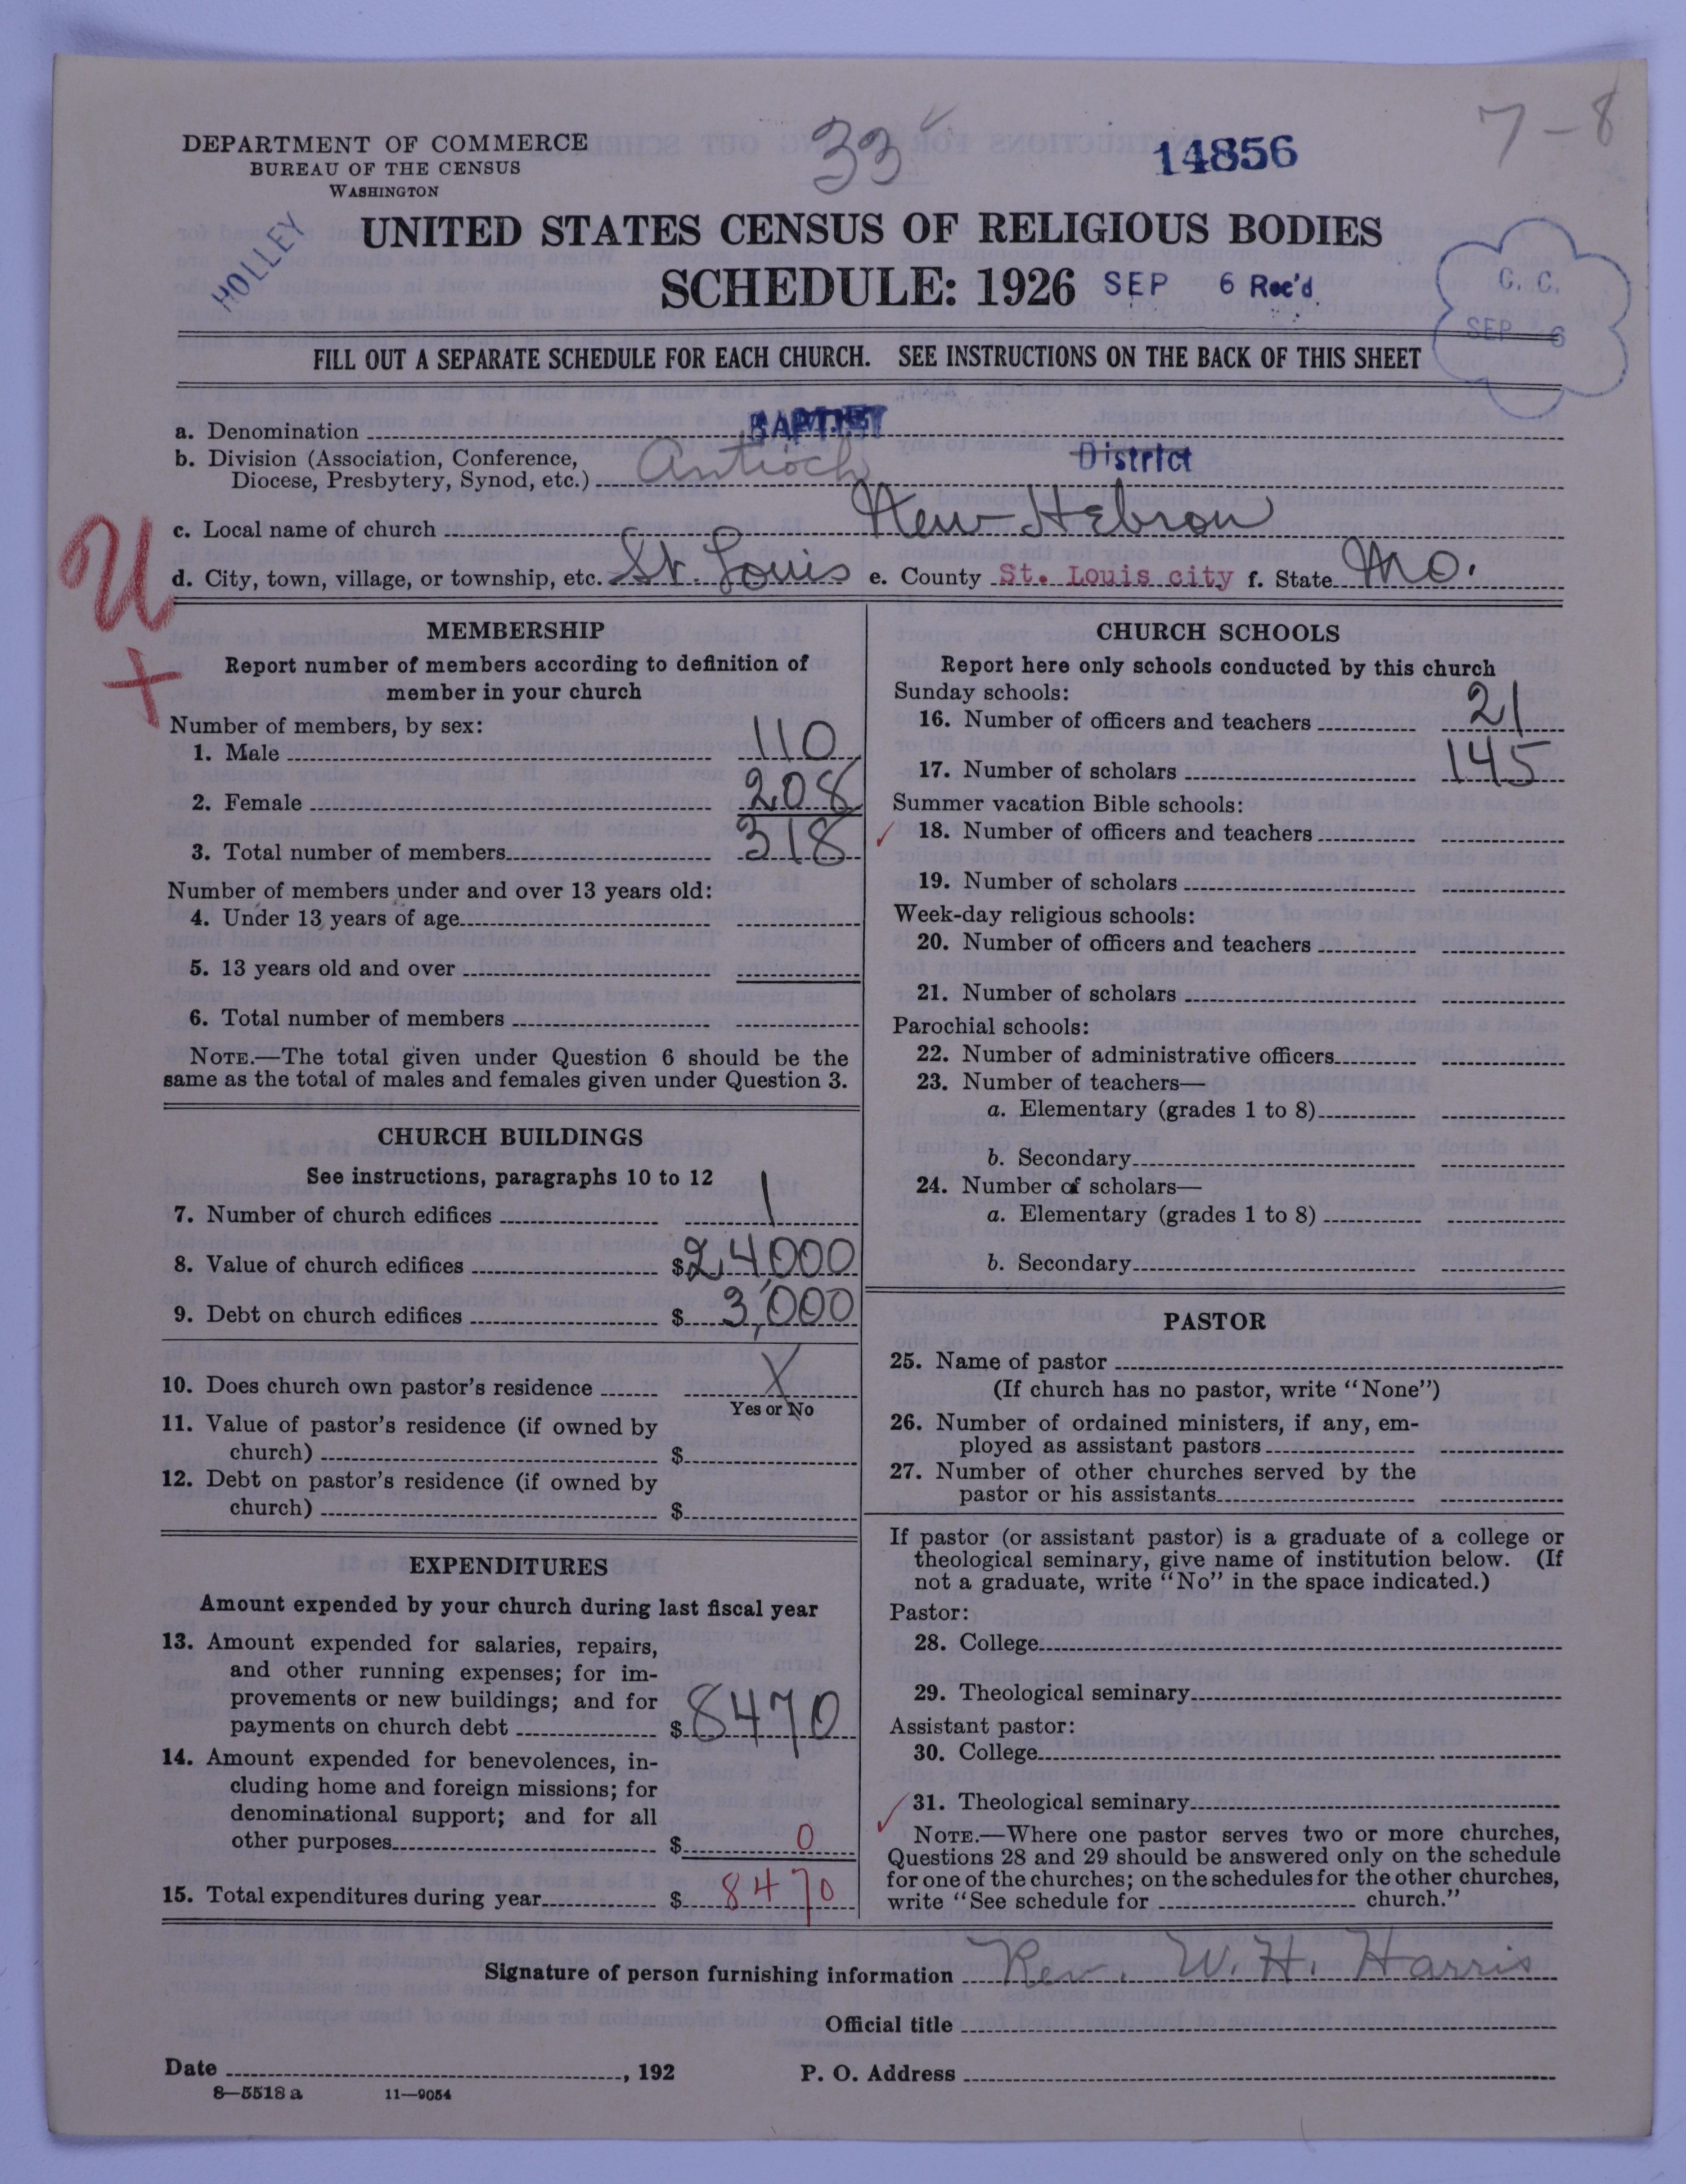 7-8
33
14856
DEPARTMENT OF COMMERCE
BUREAU OF THE CENSUS
WASHINGTON
HOLLEY
UNITED STATES CENSUS OF RELIGIOUS BODIES
SCHEDULE: 1926 SEP 6 Rec'd.
C. C.
SEP 6
FILL OUT A SEPARATE SCHEDULE FOR EACH CHURCH. SEE INSTRUCTIONS ON THE BACK OF THIS SHEET
a. Denomination BAPTIST
b. Division (Association, Conference, Diocese, Presbytery, Synod, etc.) Antioch District
c. Local name of church New Hebron
d. City, town, village, or township, etc. St. Louis e. County St. Louis city f. State Mo.
U
+
MEMBERSHIP
Report number of members according to definition of
member in your church
Number of members, by sex:
1. Male 110
2. Female 208
3. Total number of members 318
Number of members under and over 13 years old:
4. Under 13 years of age
5. 13 years old and over
6. Total number of members
NOTE.—The total given under Question 6 should be the
same as the total of males and females given under Question 3.
CHURCH BUILDINGS
See instructions, paragraphs 10 to 12
7. Number of church edifices 1
8. Value of church edifices $24,000
9. Debt on church edifices $3,000
10. Does church own pastor's residence X
Yes or No
11. Value of pastor's residence (if owned by
church) $
12. Debt on pastor's residence (if owned by
church) $
EXPENDITURES
Amount expended by your church during last fiscal year
13. Amount expended for salaries, repairs,
and other running expenses; for im-
provements or new buildings; and for
payments on church debt $8470
14. Amount expended for benevolences, in-
cluding home and foreign missions; for
denominational support; and for all
other purposes $0
15. Total expenditures during year $8470
CHURCH SCHOOLS
Report here only schools conducted by this church
Sunday schools:
16. Number of officers and teachers 21
17. Number of scholars 145
Summer vacation Bible schools:
18. Number of officers and teachers
19. Number of scholars
Week-day religious schools:
20. Number of officers and teachers
21. Number of scholars
Parochial schools:
22. Number of administrative officers
23. Number of teachers—
a. Elementary (grades 1 to 8)
b. Secondary
24. Number of scholars—
a. Elementary (grades 1 to 8)
b. Secondary
PASTOR
25. Name of pastor
(If church has no pastor, write "None")
26. Number of ordained ministers, if any, em-
ployed as assistant pastors
27. Number of other churches served by the
pastor or his assistants
If pastor (or assistant pastor) is a graduate of a college or
theological seminary, give name of institution below. (If
not a graduate, write "No" in the space indicated.)
Pastor:
28. College
29. Theological seminary
Assistant pastor:
30. College
31. Theological seminary
NOTE.—Where one pastor serves two or more churches,
Questions 28 and 29 should be answered only on the schedule
for one of the churches; on the schedules for the other churches,
write "See schedule for church."
Signature of person furnishing information Rev. W. H. Harris
Official title
Date , 192 P. O. Address
8—5518a 11—9054